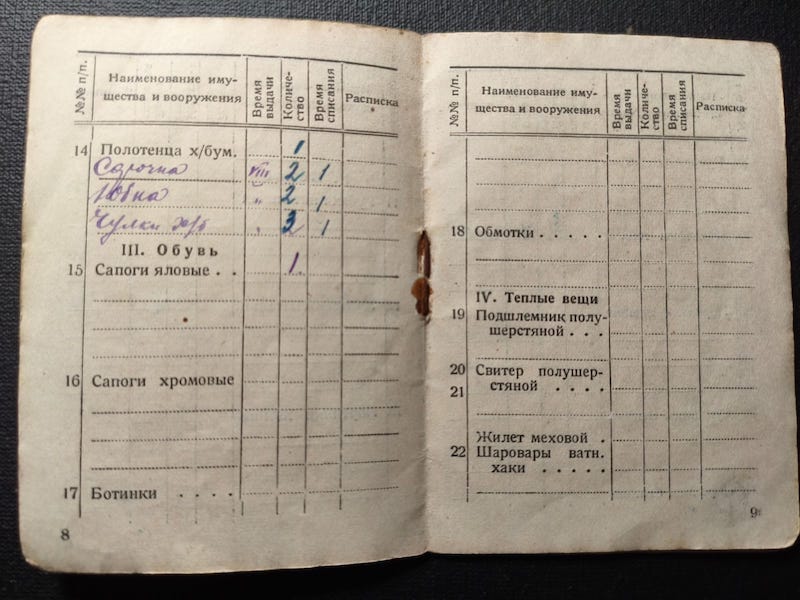 №№ п/п. Наименование иму- Время Количе- Время Расписка
щества и вооружения выдачи ство списания
14 Полотенца х/бум. 1
Сорочка VIII 2 1
Юбка " 2 1
Чулки х/б " 3 1
III. Обувь
15 Сапоги яловые . . 1.
16 Сапоги хромовые
17 Ботинки . . . .
8
№№ п/п. Наименование иму- Время Количе- Время Расписка
щества и вооружения выдачи ство списания
18 Обмотки . . . . .
IV. Теплые вещи
19 Подшлемник полу-
шерстяной . . .
20 Свитер полушер-
21 стяной . . . .
Жилет меховой .
22 Шаровары ватн.
хаки . . . . .
9